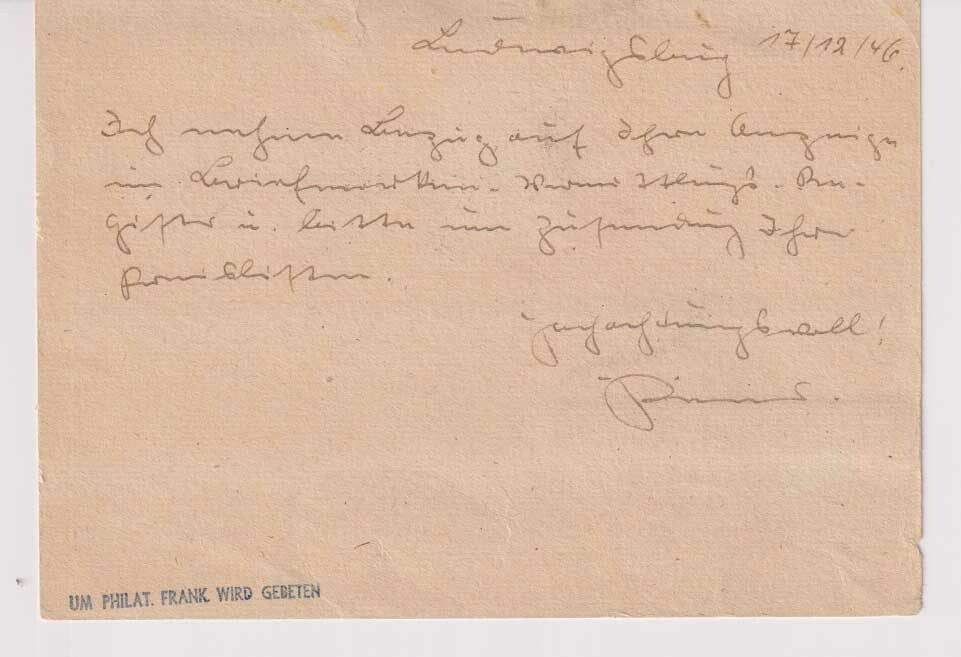 Ludwigsburg 17/12/46.
Ich nehme Bezug auf Ihre Anzeige
im Briefmarken-Vermittlungs-Re-
gister u. bitte um Zusendung Ihrer
Preislisten.
Hochachtungsvoll!
UM PHILAT. FRANK. WIRD GEBETEN